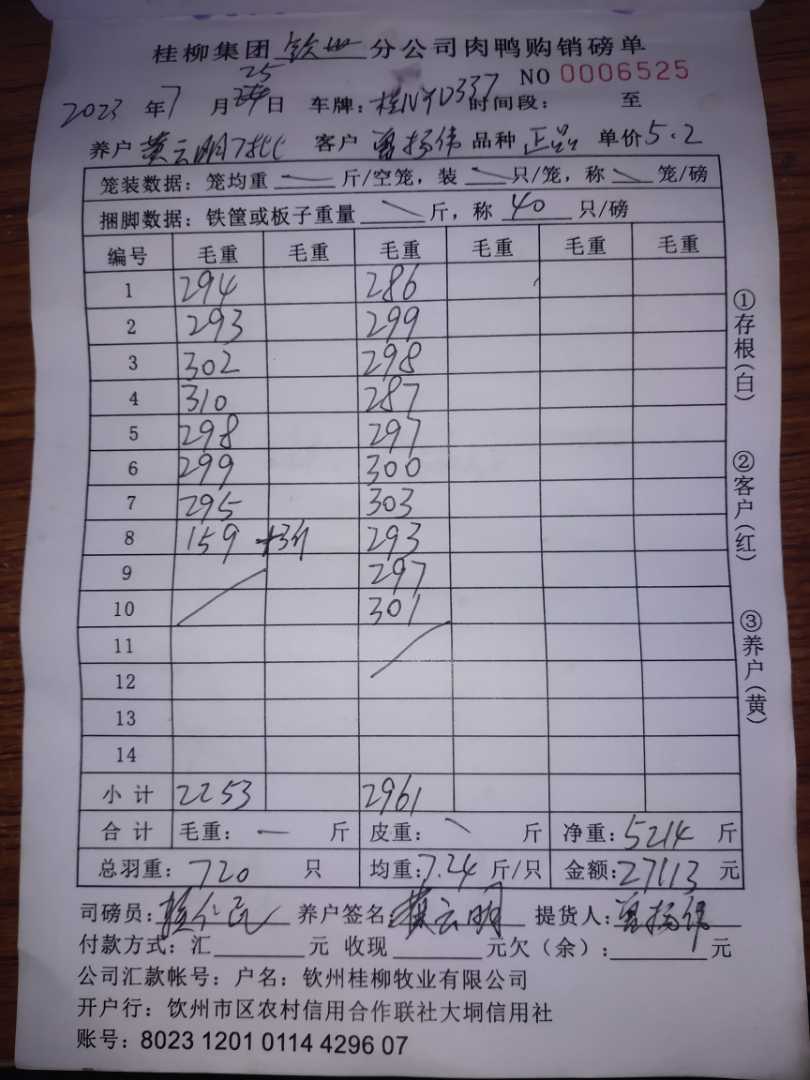 桂柳集团钦州分公司肉鸭购销磅单
NO 0006525
2023年7月25日 车牌:桂NYD337时间段: 至
养户黄云明7批 客户曾扬伟 品种正品 单价5.2
笼装数据:笼均重 斤/空笼,装 只/笼,称 笼/磅
捆脚数据:铁筐或板子重量 斤,称 40 只/磅
编号 毛重 毛重 毛重 毛重 毛重 毛重
1 294 286
2 293 299
3 302 298
4 310 287
5 298 297
6 299 300
7 295 303
8 159 +3斤 293
9 297
10 301
11
12
13
14
小计 2253 2961
合计 毛重: 斤 皮重: 斤 净重:5214 斤
总羽重:720 只 均重:7.24斤/只 金额:27113元
司磅员: 养户签名黄云明 提货人:曾扬伟
付款方式:汇 元 收现 元欠(余): 元
公司汇款帐号:户名:钦州桂柳牧业有限公司
开户行:钦州市区农村信用合作联社大垌信用社
账号:8023 1201 0114 4296 07
①存根(白)
②客户(红)
③养户(黄)